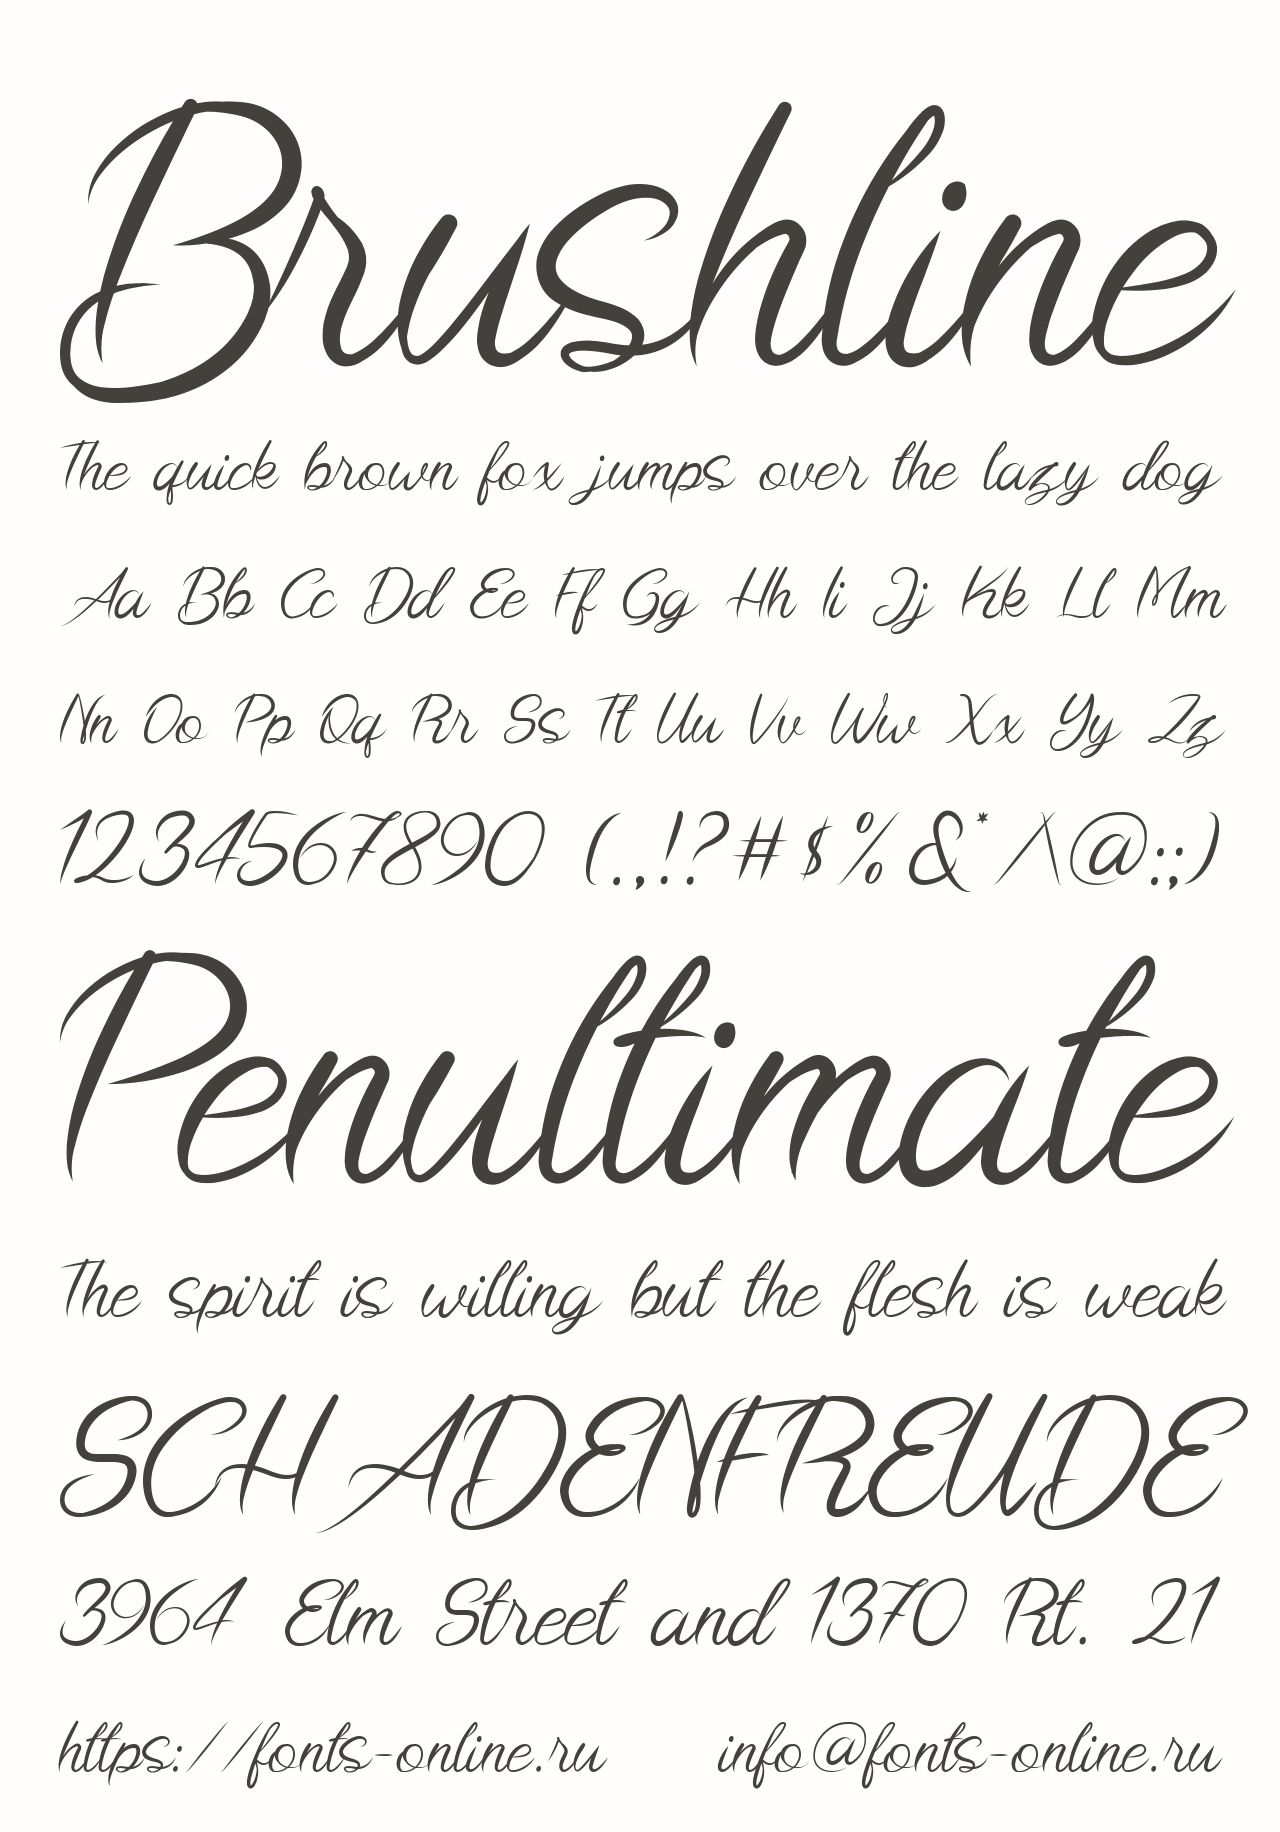 Brushline
The quick brown fox jumps over the lazy dog
Aa Bb Cc Dd Ee Ff Gg Hh Ii Jj Kk Ll Mm
Nn Oo Pp Qq Rr Ss Tt Uu Vv Ww Xx Yy Zz
1234567890 (.,!?#$%&*/\@:;)
Penultimate
The spirit is willing but the flesh is weak
SCHADENFREUDE
3964 Elm Street and 1370 Rt. 21
https://fonts-online.ru info@fonts-online.ru